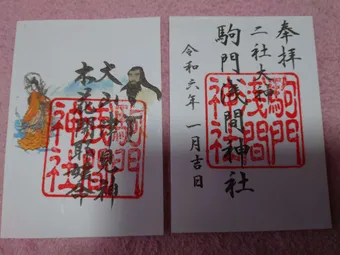 奉拝
二社大神
駒門浅間神社
令和六年 一月吉日
駒門
浅間
神社
大山津見神
木花開耶姫命
駒門
浅間
神社